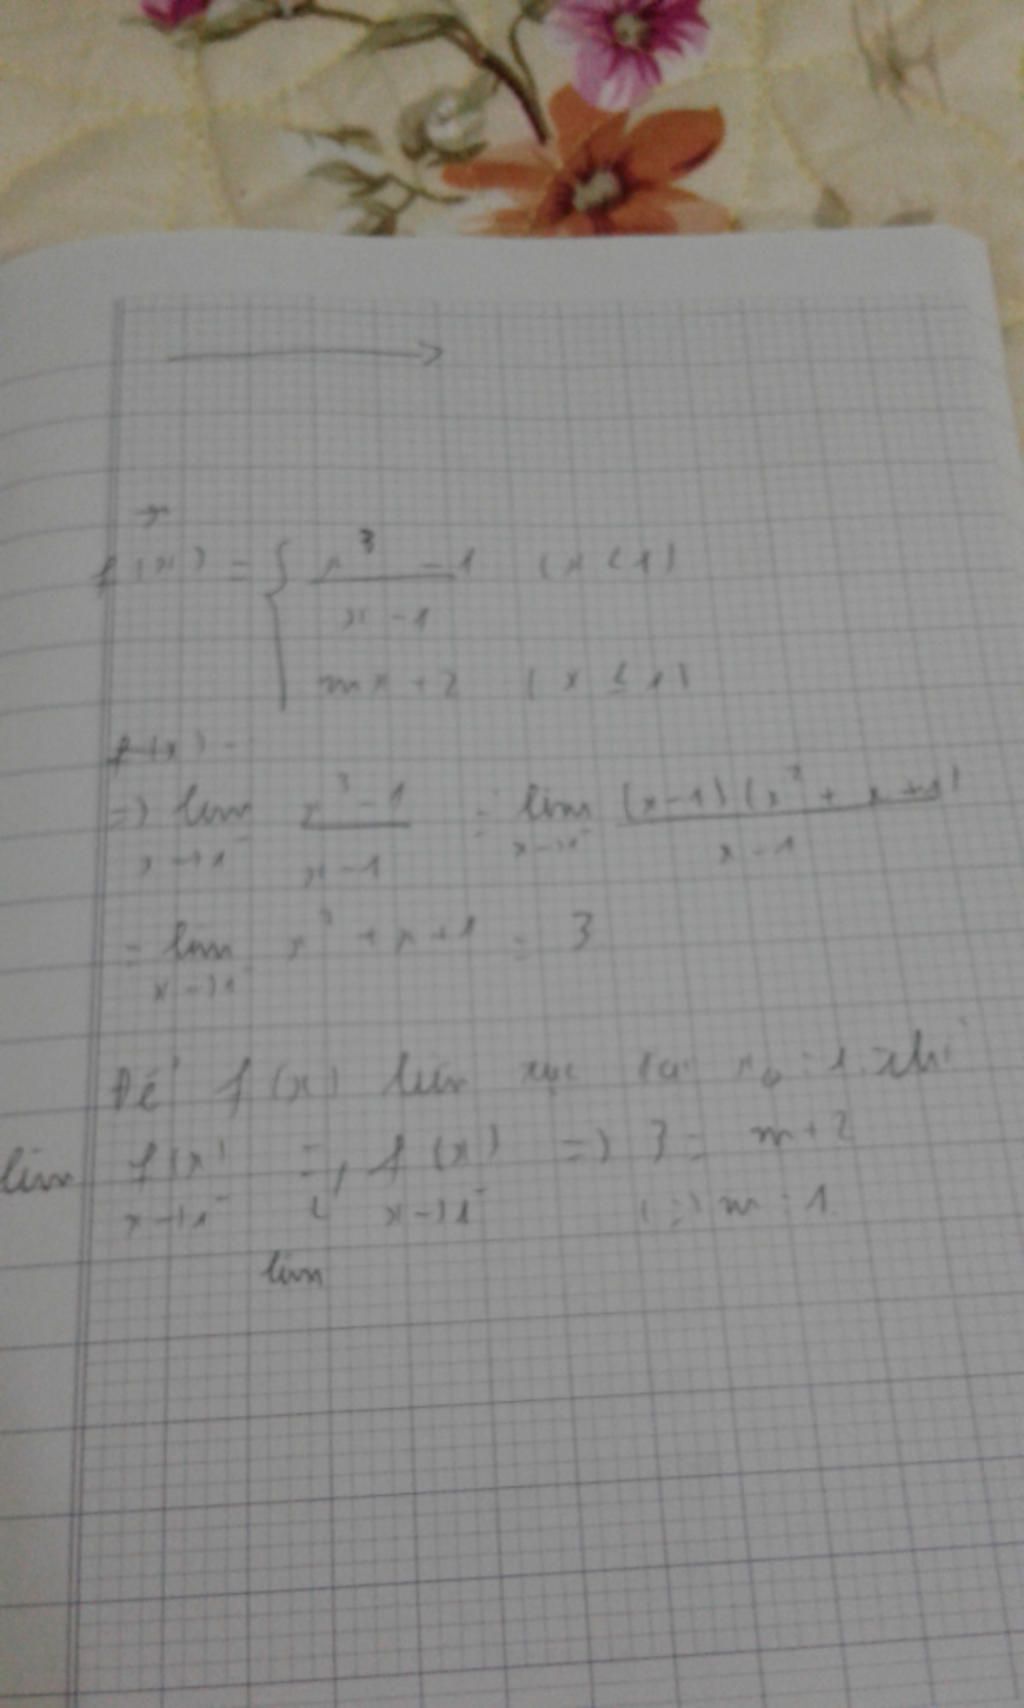 f(x) = { x³ - 1 / x - 1 (x < 1)
mx + 2 (x ≤ 1)
f(x) =
=) lim x→1⁻ x³ - 1 / x - 1 = lim x→1⁻ (x-1)(x² + x + 1) / x - 1
= lim x→1⁻ x² + x + 1 = 3
Để f(x) liên tục tại x₀ = 1 khi
lim f(x) x→1⁻ = f(x) x→1⁻ =) 3 = m + 2
(=) m = 1
lim